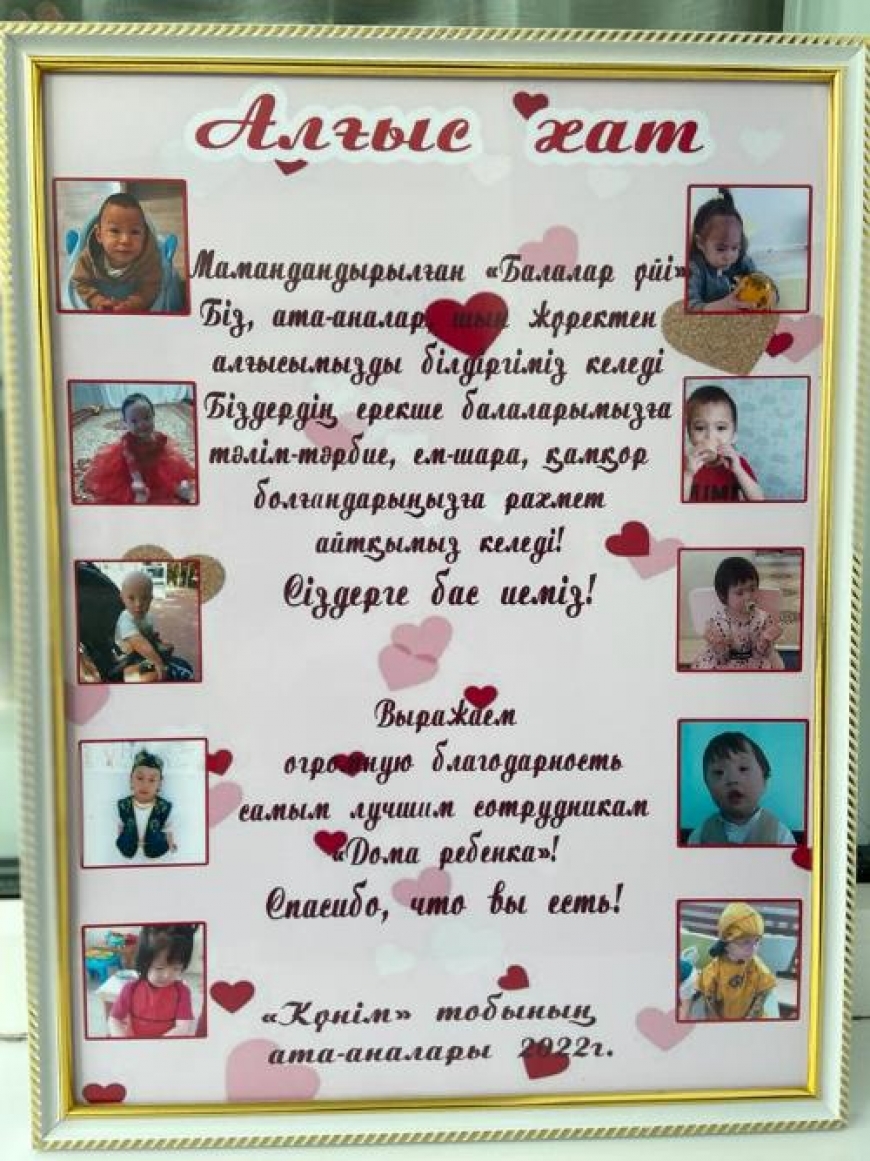 Алғыс хат
Мамандандырылған «Балалар үйі»
Біз, ата-аналар шын жүректен
алғысымызды білдіргіміз келеді
Біздердің ерекше балаларымызға
тәлім-тәрбие, ем-шара, қамқор
болғандарыңызға рахмет
айтқымыз келеді!
Сіздерге бас иеміз!
Выражаем
огромную благодарность
самым лучшим сотрудникам
«Дома ребенка»!
Спасибо, что вы есть!
«Күнім» тобының
ата-аналары 2022г.